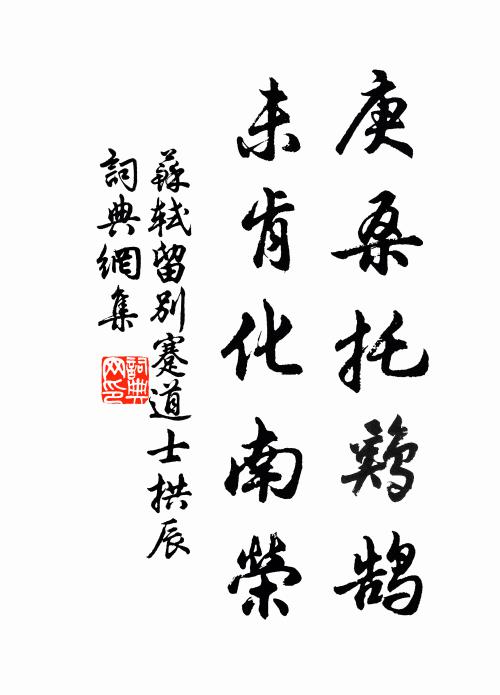 庚桑托鷄鵠
未肯化南榮
蘇軾留别蹇道士拱辰
詞典網集
詞典網印